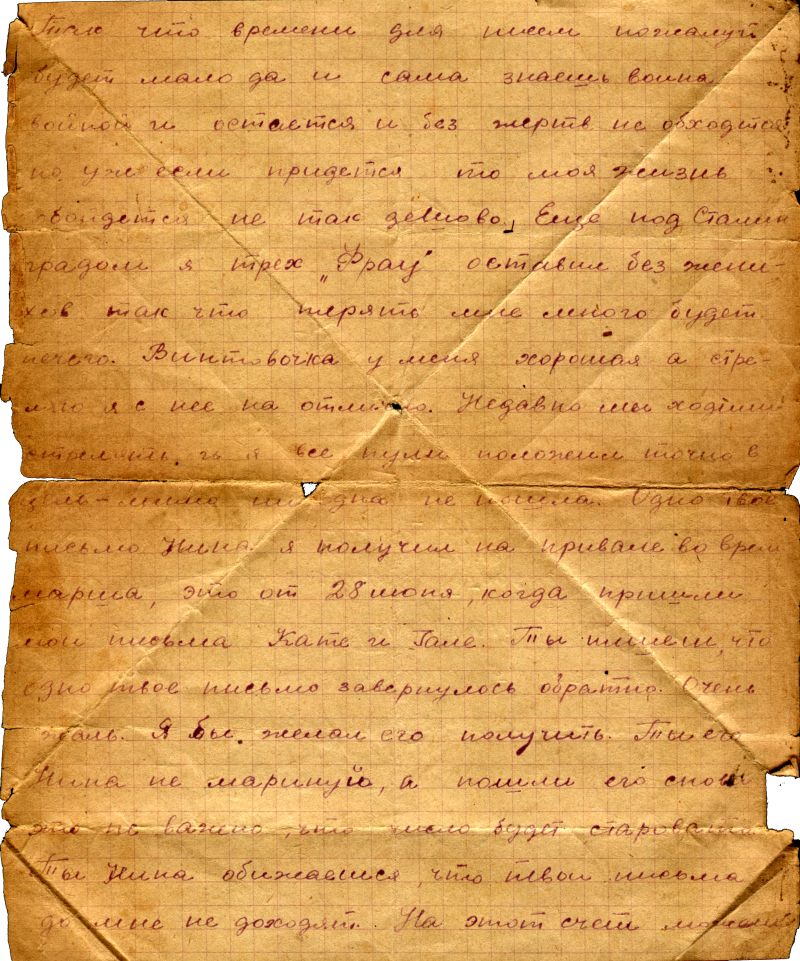 Так что времени для писем пожалуй
будет мало да и сама знаешь война
войной и остается и без жертв не обходится
но уж если придется то моя жизнь
обойдется не так дешево. Еще под Сталин
градом я трех „Фрау" оставил без жени-
хов так что терять мне много будет
нечего. Винтовочка у меня хорошая а стре-
ляю я с нее на отлично. Недавно мы ходили
стрелять, и я все пули положил точно в
цель – мимо ни одна не пошла. Одно твое
письмо Нина я получил на привале во врем
марша, это от 28 июня, когда пришли
мои письма Кате и Гале. Ты пишеш, что
одно твое письмо завернулось обратно. Очень
жаль. Я бы желал его получить. Ты его
Нина не маринуй, а пошли его снов
это не важно, что число будет староватое
Ты Нина обижаешся, что твои письма
до мне не доходят. На этот счет можеш